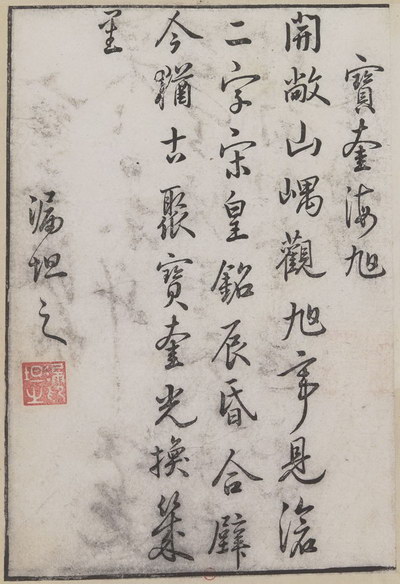 寶奎海旭
開敞山嵎觀旭亭見滄
二字宋皇銘辰昏合璧
今猶古聚寶奎光換幾
星
漏坦之